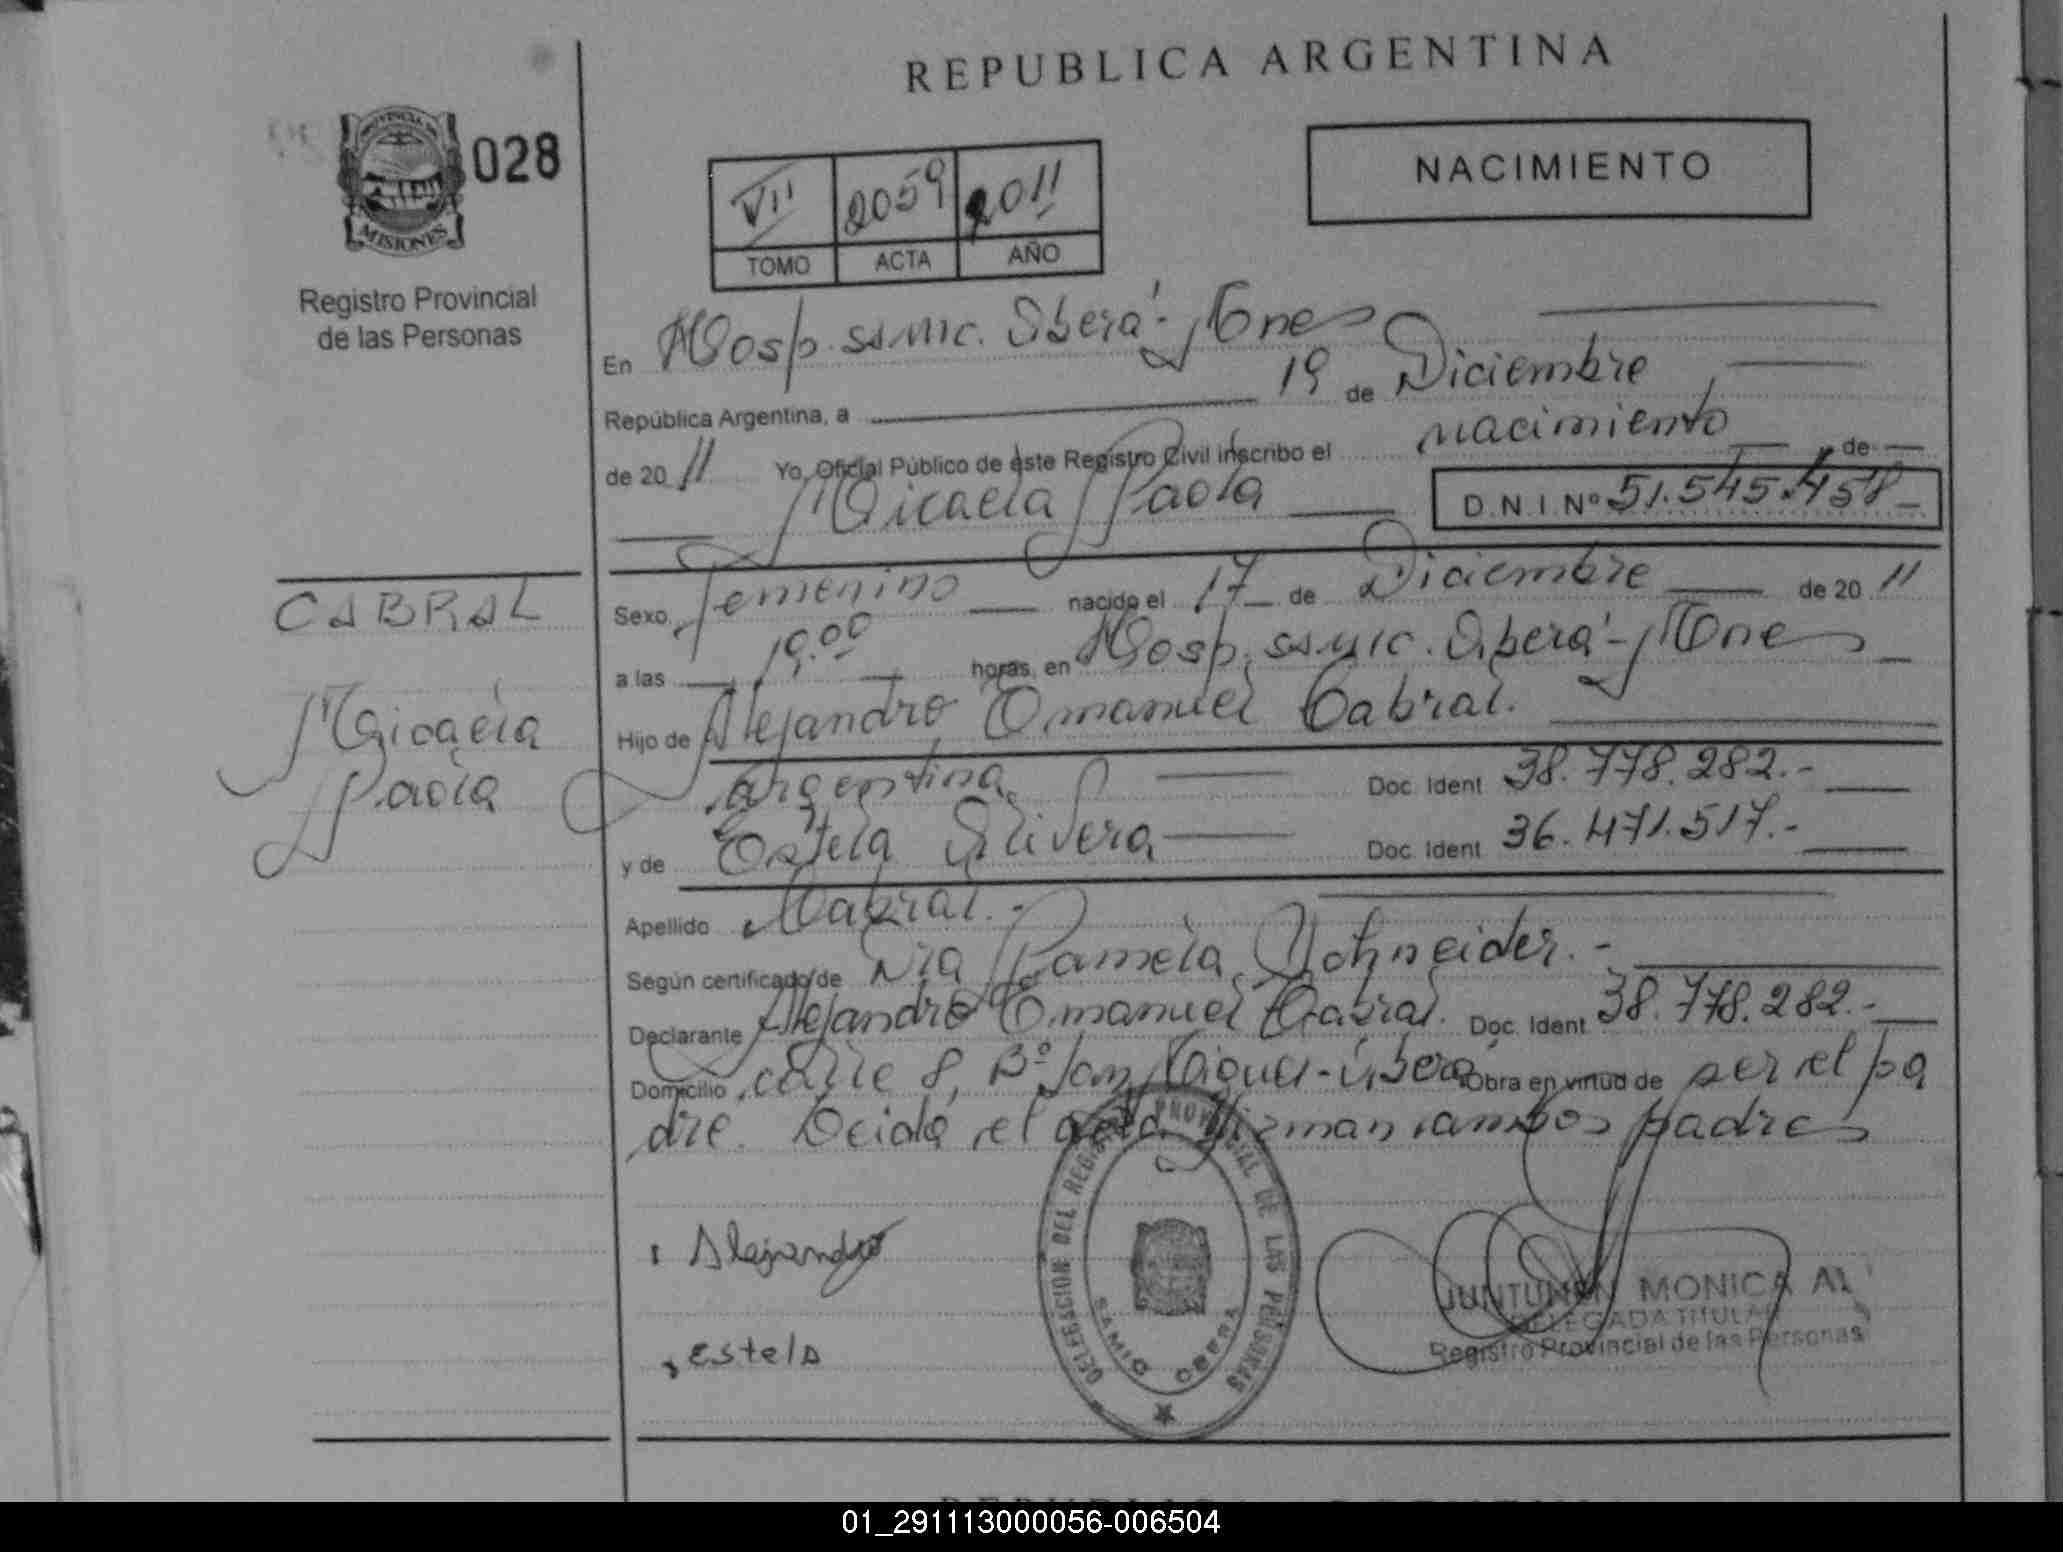 REPUBLICA ARGENTINA
PROVINCIA DE
MISIONES
028
Registro Provincial
de las Personas
VII 2059 2011
TOMO ACTA AÑO
NACIMIENTO
En Hosp. SAMIC. Oberá - Mnes
República Argentina, a 19 de Diciembre
de 2011 Yo, Oficial Público de este Registro Civil inscribo el nacimiento de
Micaela Paola
D.N.I. Nº 51.545.458
CABRAL
Micaela
Paola
Sexo Femenino nacido el 17 de Diciembre de 2011
a las 19.00 horas, en Hosp. SAMIC. Oberá - Mnes
Hijo de Alejandro Emanuel Cabral.
Argentina Doc. Ident 38.778.282.-
y de Estela Olivera Doc. Ident 36.471.517.-
Apellido Cabral.-
Según certificado de Dra Pamela Schneider.-
Declarante Alejandro Emanuel Cabral. Doc. Ident 38.778.282.-
Domicilio calle 8, Bº San Miguel - Oberá Obra en virtud de ser el pa
dre. Leida el acta firman ambos padres
DELEGACION DEL REGISTRO PROVINCIAL DE LAS PERSONAS
SAMIC OBERA
Alejandro
Estela
JUNTUNEN MONICA A.
DELEGADA TITULAR
Registro Provincial de las Personas
01_291113000056-006504